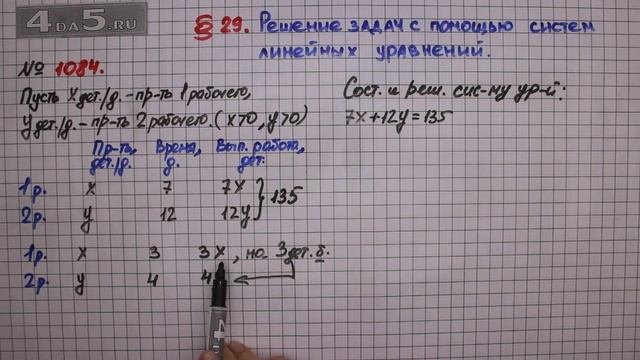 4DA5.RU
§ 29. Решение задач с помощью систем
линейных уравнений.
№ 1084.
Пусть x дет./д. – пр-ть 1 рабочего,
y дет./д. – пр-ть 2 рабочего. (x>0, y>0)
Сост. и реш. сис-му ур-й:
7x+12y=135
Пр-ть, дет./д. Время, д. Вып. работа, дет.
1р. x 7 7x
135
2р. y 12 12y
1р. x 3 3x, но 3 дет. б.
2р. y 4 4